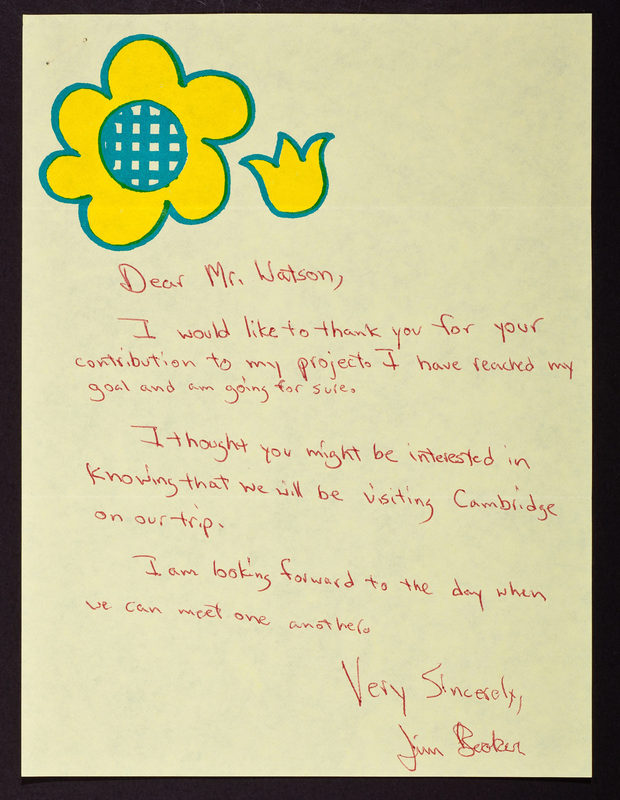 Dear Mr. Watson,
I would like to thank you for your
contribution to my project. I have reached my
goal and am going for sure.
I thought you might be interested in
knowing that we will be visiting Cambridge
on our trip.
I am looking forward to the day when
we can meet one another.
Very Sincerely,
Jim